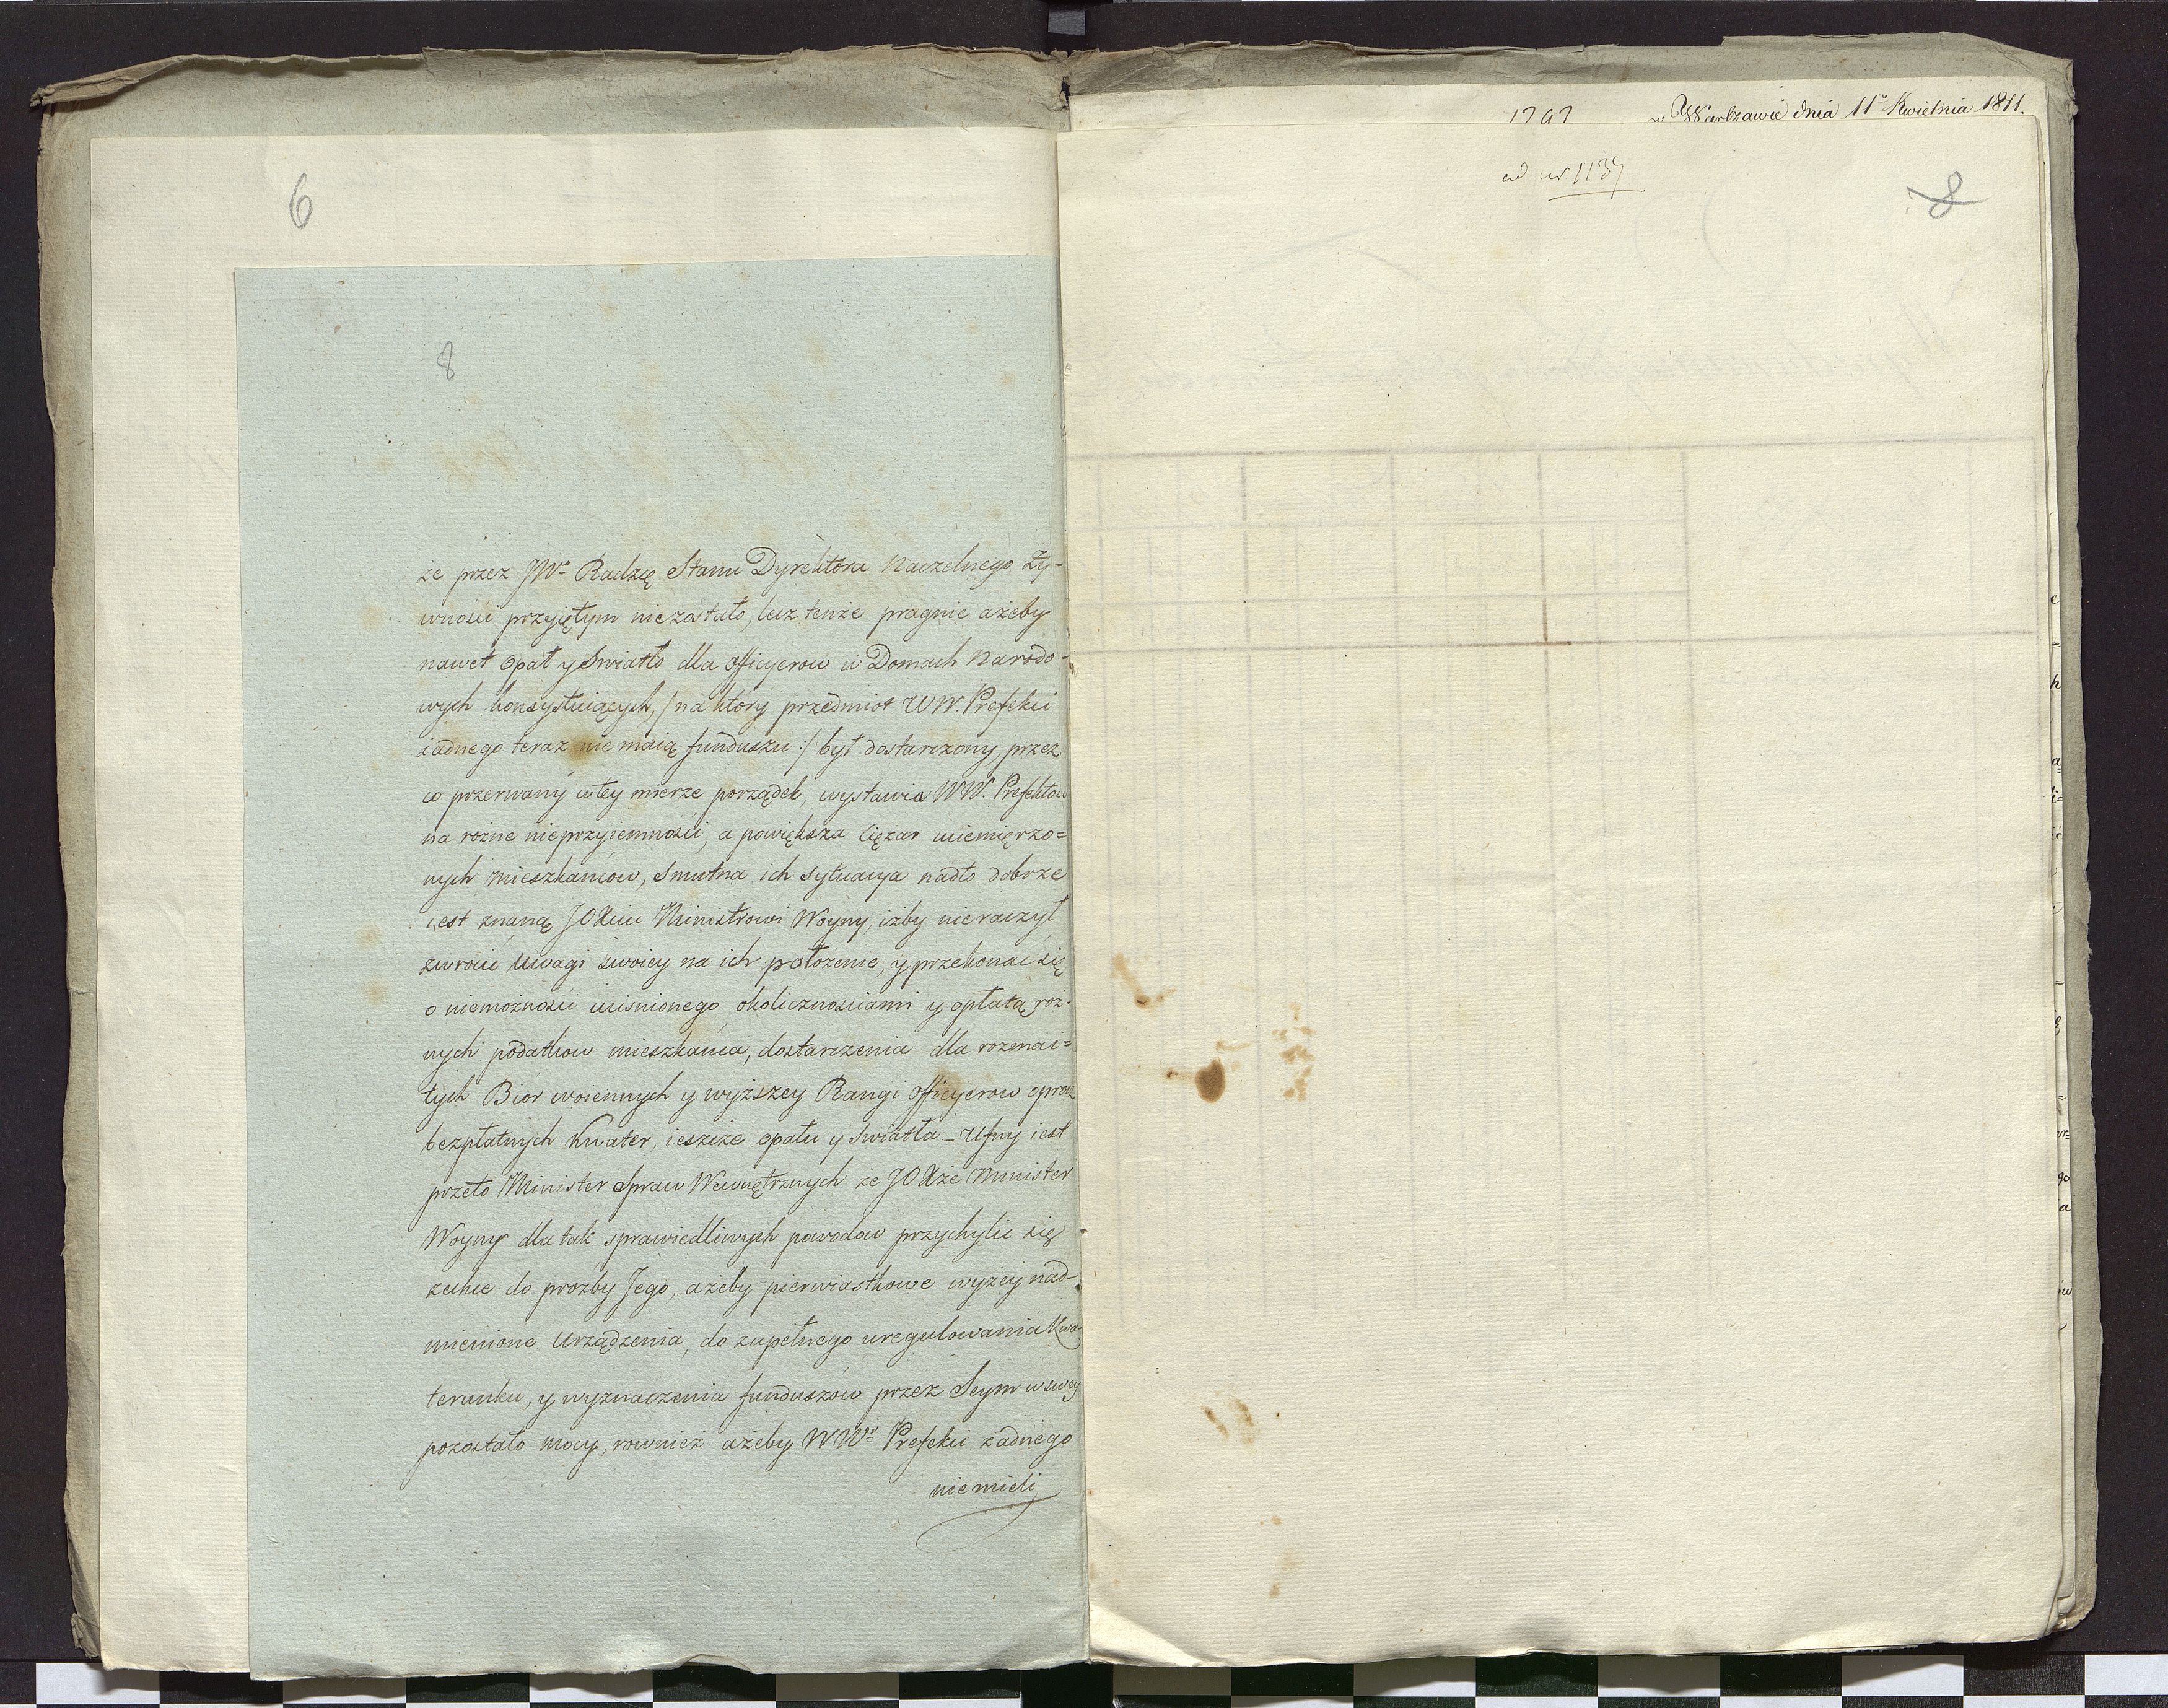 6
8
ze przez JWo Radzcę Stanu Dyrektora Naczelnego Ży-
wności przyiętym niezostało, lecz tenże pragnie ażeby
nawet opał y Swiatło dla officyerow w Domach Narodo-
wych konsystuiących, /: na ktory przedmiot WW. Prefekci
żadnego teraz nie maią funduszu :/ był dostarczony, przez
co przerwany w tey mierze porządek, wystawia WW. Prefektow
na rożne nieprzyiemności, a powiększa Ciężar uciemięrzo=
nych mieszkancow, Smutna ich Sytuacya nadto dobrze
iest znaną JOXciu Ministrowi Woyny, iżby nieraczył
zwrocić Uwagi swoiey na ich położenie, y przekonać się
o niemożności uciśnionego okolicznościami y opłatą roż-
nych podatkow mieszkańca, dostarczenia dla rozmai=
tych Biór woiennych y wyższey Rangi officyerow oprocz
bezpłatnych Kwater, ieszcze opału y swiatła _ Ufny iest
przeto Minister Spraw Wewnętrznych że JOXże Minister
Woyny dla tak sprawiedliwych powodow przychylić się
zechce do prozby Jego, ażeby pierwiastkowe wyżey nad-
mienione Urządzenia, do zupełnego uregulowania Kwa-
terunku, y wyznaczenia funduszów przez Seym w swey
pozostało mocy, rownież ażeby WWni Prefekci żadnego
niemieli
w Warszawie dnia 11o Kwietnia 1811.
ad nr 1137
8